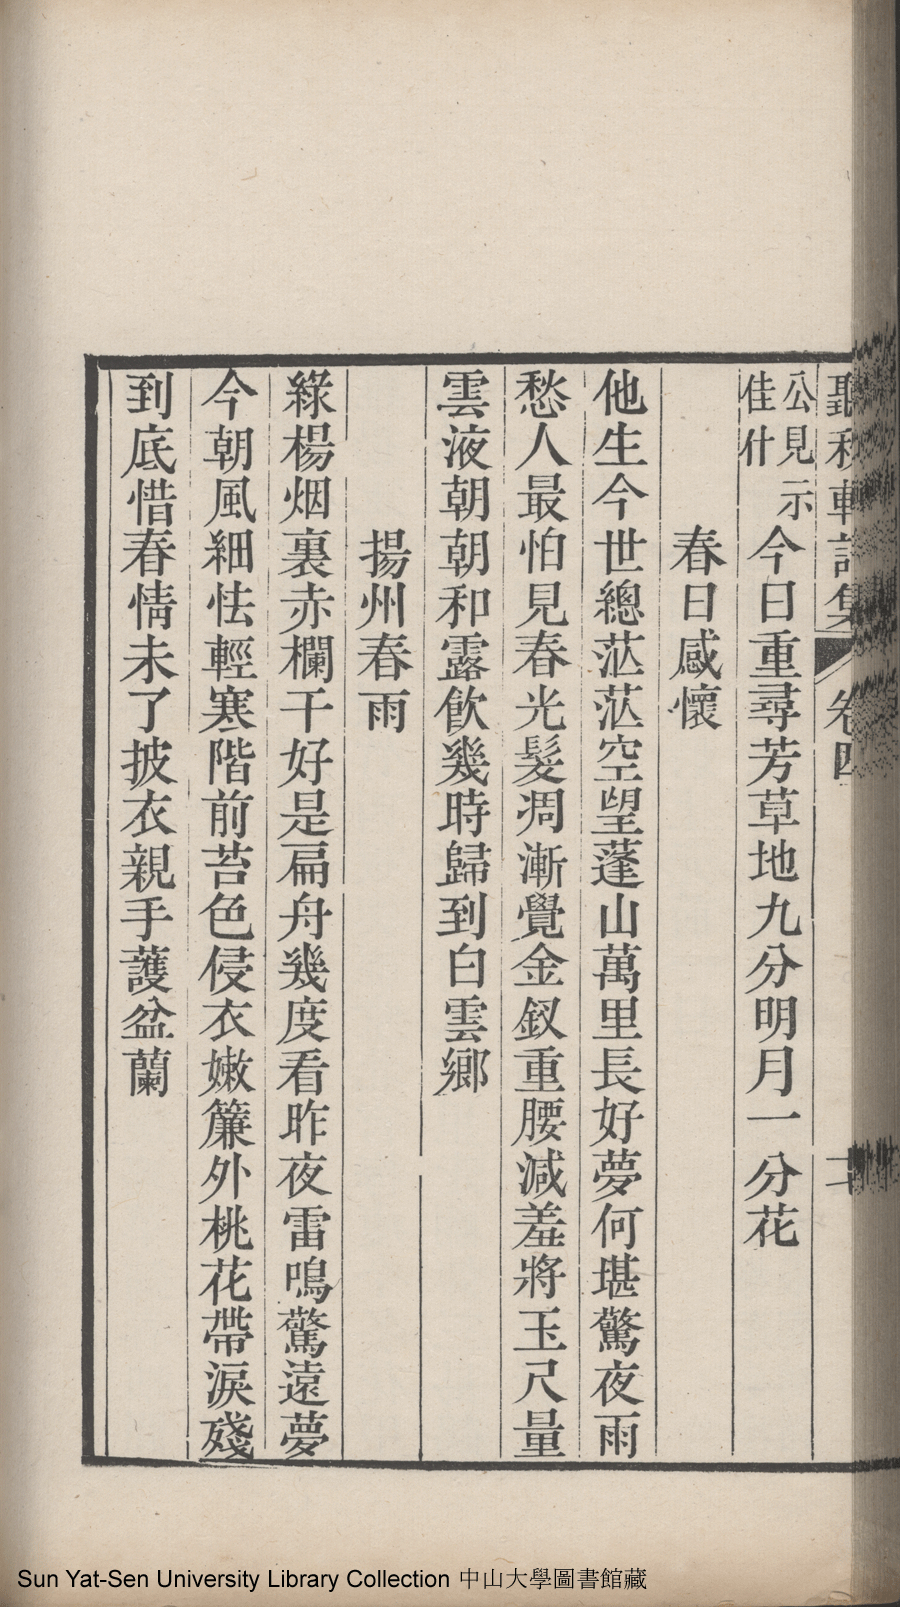 聽秋軒詩集 卷四
公見示
佳什
今日重尋芳草地九分明月一分花
春日感懷
他生今世總茫茫空望蓬山萬里長好夢何堪驚夜雨
愁人最怕見春光髮凋漸覺金釵重腰減羞將玉尺量
雲液朝朝和露飲幾時歸到白雲鄉
揚州春雨
綠楊烟裏赤欄干好是扁舟幾度看昨夜雷鳴驚遠夢
今朝風細怯輕寒階前苔色侵衣嫩簾外桃花帶淚殘
到底惜春情未了披衣親手護盆蘭
Sun Yat-Sen University Library Collection 中山大學圖書館藏